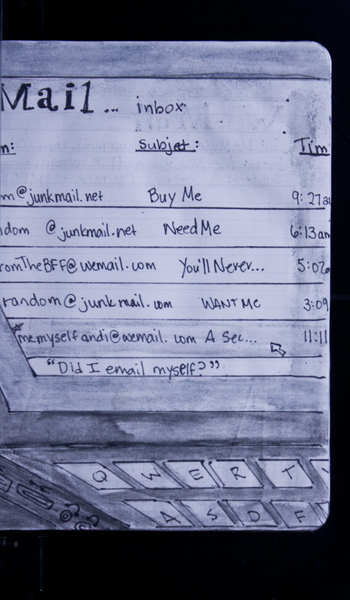 Mail... inbox
m: Subject: Tim
m@junkmail.net Buy Me 9:27a
dom @junkmail.net Need Me 6:13am
romTheBFF@wemail.com You'll Never... 5:02
random@junkmail.com WANT Me 3:09
memyselfandi@wemail.com A Sec... 11:11
"Did I email myself?"
Q W E R T
A S D F